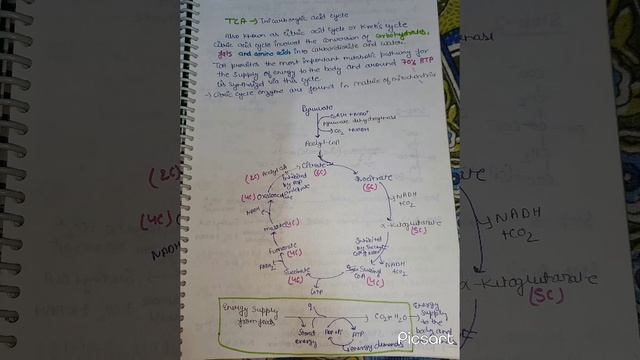 TCA → Tricarboxylic acid cycle
Also known as citric acid cycle or Kreb's cycle
Citric acid cycle involved the conversion of carbohydrates,
fats and amino acids into carbondioxide and water.
TCA provides the most important metabolic pathway for
the supply of energy to the body and around 70% ATP
is synthesized via this cycle
→ Citric cycle enzyme are found in matrix of mitochondria
Pyruvate
Pyruvate dehydrogenase
→ CO2 + NADH
Acetyl-CoA
(2C) Acetyl CoA
→ Citrate
(6C)
Inhibited
by ATP
Isocitrate
(6C)
(4C) Oxaloacetate
NADH
+CO2
NADH
Malate (4C)
α-Ketoglutarate
(5C)
Fumarate
(4C)
Inhibited
by
NADH
+CO2
FADH2
Succinate
(4C)
CoA (4C)
GTP
Energy Supply
from foods
CO2 + H2O
Energy
Supply
to the
body and
Stored
energy
ADP+Pi
ATP
Energy demands
Picsart
(2C)
(4C)
NADH
NADH
+CO2
α-Ketoglutarate
(5C)